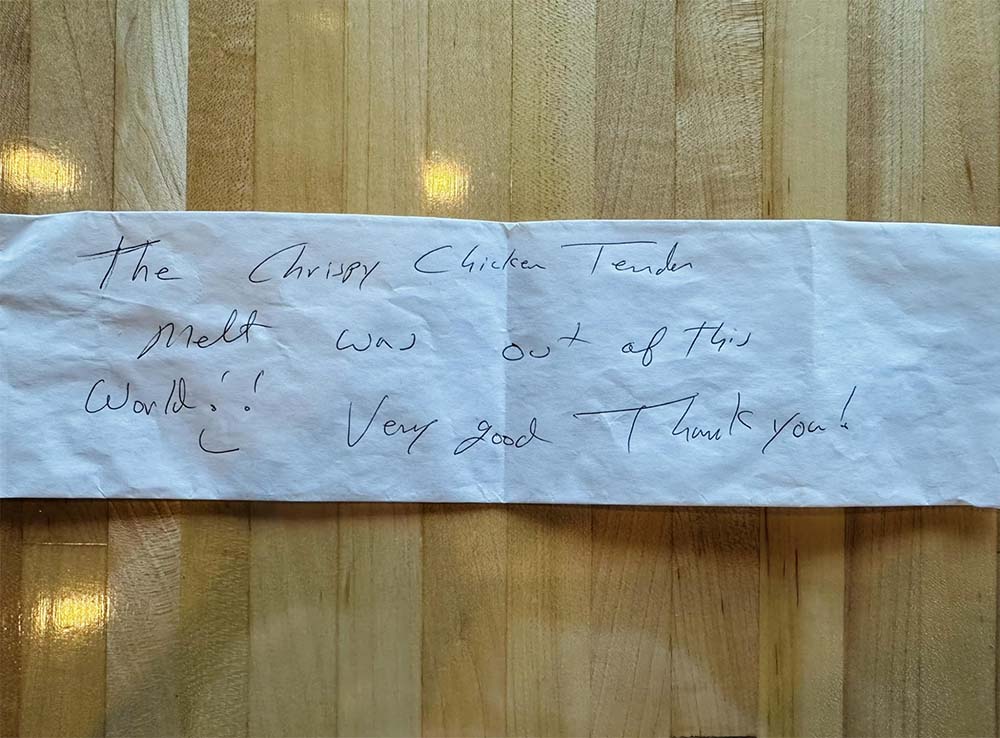 The Chrispy Chicken Tender
Melt was out of this
World!! Very good Thank you!